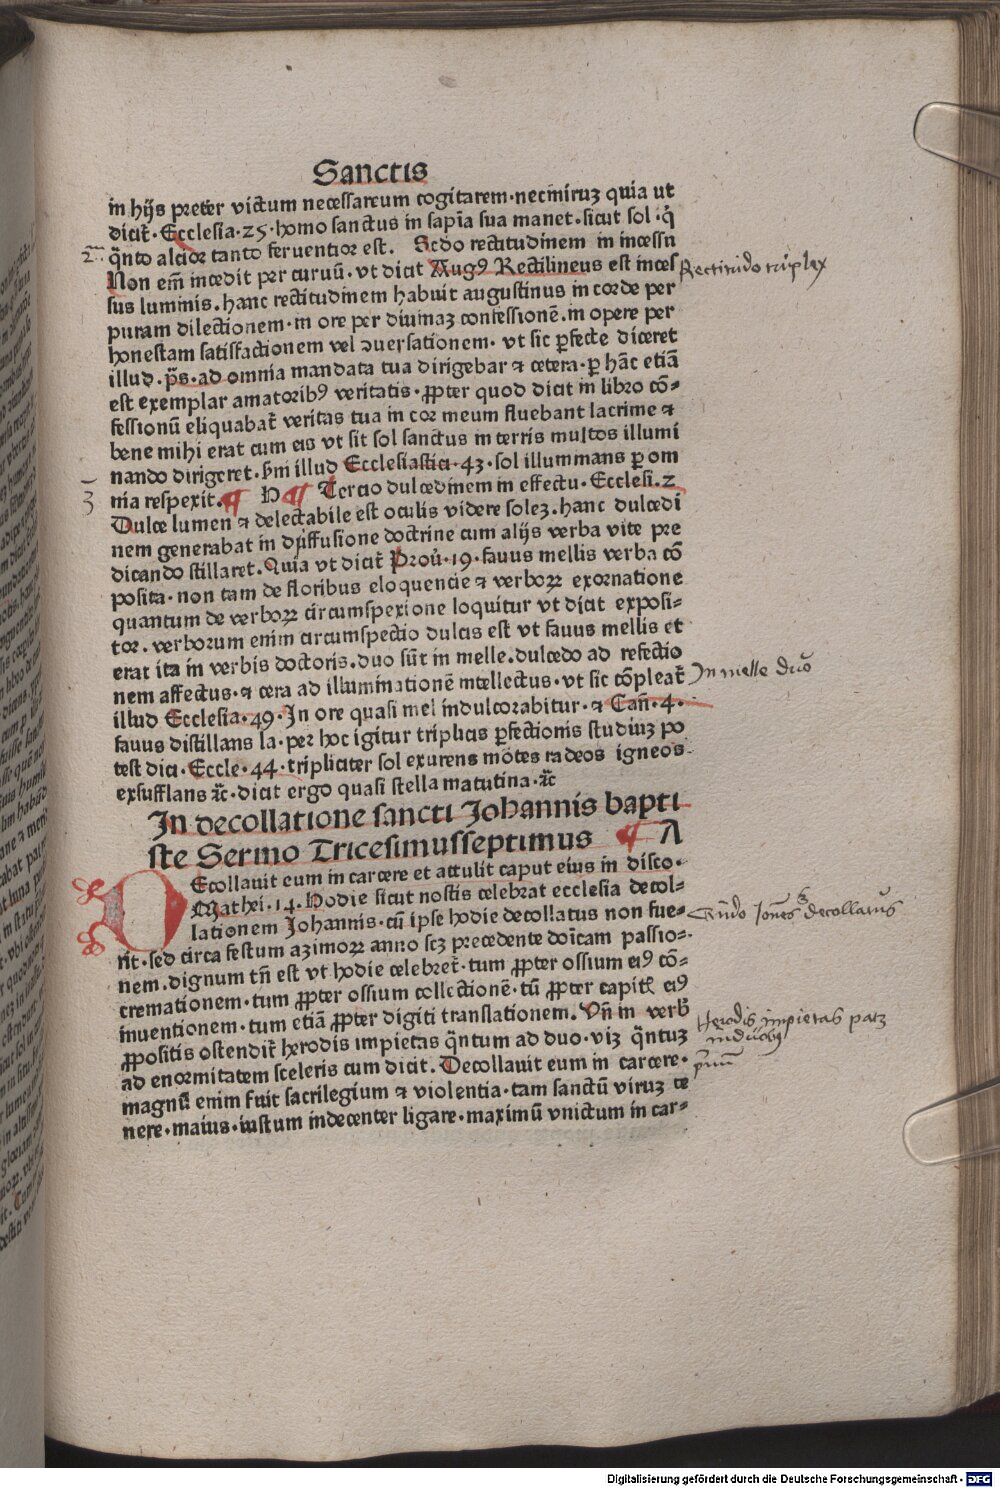 Sanctis
in hijs preter victum necessareum cogitarem·necmiruꝫ quia ut
dicit̄·Ecclesia·25·homo sanctus in sapīa sua manet·sicut sol·q̇
q̄nto alcior tanto feruentior est. Scd̄o rectitudinem in incessu
Non em̄ incedit per curuū·vt dicit Augꝰ Rectilineus est inces
sus luminis.hanc rectitudinem habuit augustinus in corde per
puram dilectionem·in ore per diuinaꝫ confessionē.in opere per
honestam satisfactionem vel ɔuersationem·vt sic ꝑfecte diceret
illud·p̄s·ad omnia mandata tua dirigebar ⁊ cetera·ꝑ hāc etiā
est exemplar amatoribꝰ veritatis·ꝓpter quod dicit in libro cō-
fessionū eliquabat̄ veritas tua in cor meum fluebant lacrime ⁊
bene mihi erat cum eis vt sit sol sanctus in terris multos illumi
nando dirigeret·s̄m illud Ecclesiastici·43·sol illuminans ꝑ om
nia respexit.¶ H¶ Tercio dulcedinem in effectu·Ecclesi.2
Dulce lumen ⁊ delectabile est oculis videre soleꝫ.hanc dulcedi
nem generabat in diffusione doctrine cum alijs verba vite pre
dicando stillaret.Quia vt dicit̄ Prou̇·19·fauus mellis verba cō
posita·non tam de floribus eloquencie ⁊ verboꝝ exornatione
quantum de verboꝝ circumspexione loquitur vt dicit exposi-
tor.verborum enim circumspectio dulcis est vt fauus mellis et
erat ita in verbis doctoris.duo sūt in melle.dulcedo ad refectio
nem affectus·⁊ cera ad illuminationē intellectus·vt sic cōpleat̄
illud Ecclesia·49·In ore quasi mel indulcorabitur·⁊ Can̄·4·
fauus distillans la·per hoc igitur triplicis ꝑfectionis studiuꝫ po
test dici·Eccle·44·tripliciter sol exurens mōtes radeos igneos·
exsufflans ⁊c̄·dicit ergo quasi stella matutina·⁊c̄
In decollatione sancti Johannis bapti
ste Sermo Tricesimusseptimus ¶ A
DEcollauit eum in carcere et attulit caput eius in disco·
Mathei·14·Hodie sicut nostis celebrat ecclesia decol-
lationem Johannis·cū ipse hodie decollatus non fue-
rit·sed circa festum azimoꝝ anno scꝫ precedente doīcam passio-
nem.dignum tn̄ est vt hodie celebret̄·tum ꝓpter ossium eiꝰ cō-
cremationem·tum ꝓpter ossium collectionē·tū ꝓpter capitꝭ eiꝰ
inuentionem·tum etiā ꝓpter digiti translationem.Vn̄ in verb̄
ꝓpositis ostendit̄ herodis impietas q̄ntum ad duo·viꝫ q̄ntuꝫ
ad enormitatem sceleris cum dicit.Decollauit eum in carcere·
magnū enim fuit sacrilegium ⁊ violentia·tam sanctū viruꝫ te
nere·maius·iustum indecenter ligare·maximū vnictum in car-
2
3
Rectitudo triplex
In melle duo
Qn̄do Joh̄es decollatus
Herodis impietas patꝫ
in duobꝰ
p̄mū
Digitalisierung gefördert durch die Deutsche Forschungsgemeinschaft - DFG